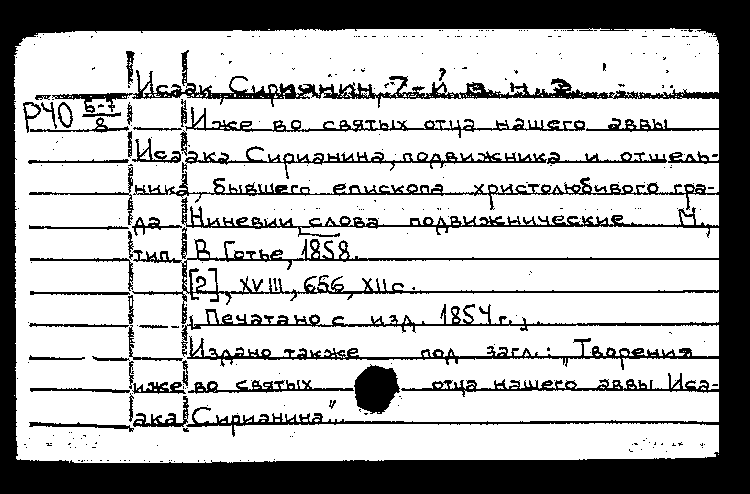 Исаак, Сириянин, 7-й в. н.э.
Р40 5-7/8
Иже во святых отца нашего аввы
Исаака Сирианина, подвижника и отшель-
ника, бывшего епископа христолюбивого гра-
да Ниневии, слова подвижнические М.,
тип. В. Готье, 1858.
[2], XVIII, 656, XII с.
"Печатано с изд. 1854 г.".
Издано также под загл.: "Творения
иже во святых отца нашего аввы Иса-
ака Сирианина".